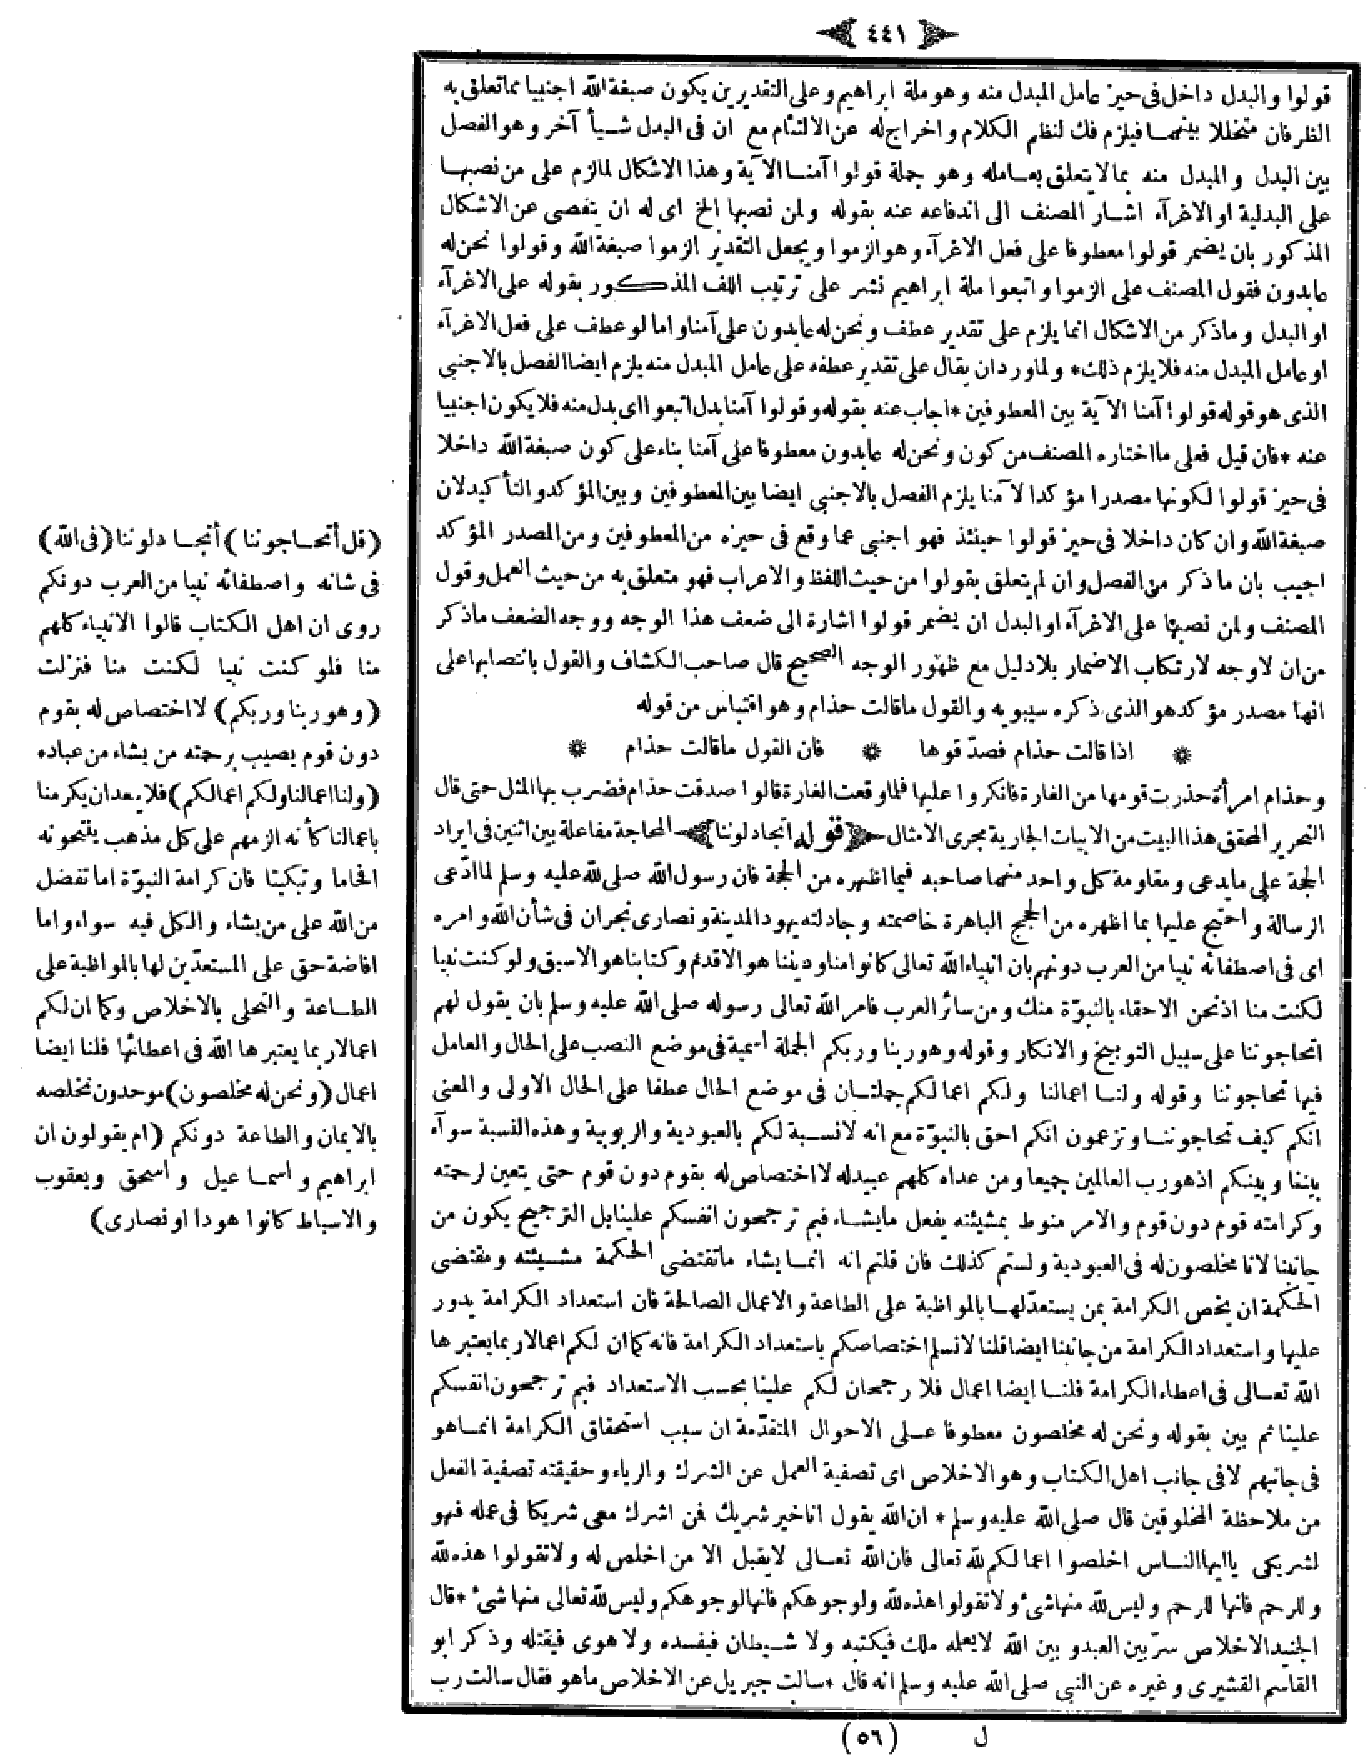 ٤٤١
قولوا والبدل داخل فى حيز عامل المبدل منه وهو ملة ابراهيم وعلى التقديرين يكون صبغة الله اجنبيا مما تعلق به
الظرفان متخللا بينهما فيلزم فك لنظم الكلام واخراج له عن الالتئام مع ان فى البدل شيأ آخر وهو الفصل
بين البدل والمبدل منه بما لا يتعلق بعامله وهو جملة قولوا آمنا الآية وهذا الاشكال لما لزم على من نصبها
على البدلية او الاغرآء اشار المصنف الى اندفاعه عنه بقوله ولمن نصبها الخ اى له ان يتفصى عن الاشكال
المذكور بان يضمر قولوا معطوفا على فعل الاغرآء وهو الزموا ويجعل التقدير الزموا صبغة الله وقولوا نحن له
عابدون فقول المصنف على الزموا واتبعوا ملة ابراهيم نشر على ترتيب اللف المذكور بقوله على الاغرآء
او البدل وما ذكر من الاشكال انما يلزم على تقدير عطف ونحن له عابدون على آمنا واما لو عطف على فعل الاغرآء
او عامل المبدل منه فلا يلزم ذلك * ولما ورد ان يقال على تقدير عطفه على عامل المبدل منه يلزم ايضا الفصل بالاجنبي
الذى هو قوله قولوا آمنا الآية بين المعطوفين * اجاب عنه بقوله وقولوا آمنا بدل اتبعوا اى بدل منه فلا يكون اجنبيا
عنه * فان قيل فعلى ما اختاره المصنف من كون ونحن له عابدون معطوفا على آمنا بناء على كون صبغة الله داخلا
فى حيز قولوا لكونها مصدرا مؤكدا لآمنا يلزم الفصل بالاجنبي ايضا بين المعطوفين وبين المؤكد والتأكيد لان
صبغة الله وان كان داخلا فى حيز قولوا حينئذ فهو اجنبي عما وقع فى حيزه من المعطوفين ومن المصدر المؤكد
اجيب بان ما ذكر من الفصل وان لم يتعلق بقولوا من حيث اللفظ والاعراب فهو متعلق به من حيث العمل وقول
المصنف ولمن نصبها على الاغرآء او البدل ان يضمر قولوا اشارة الى ضعف هذا الوجه ووجه الضعف ما ذكر
من ان لا وجه لارتكاب الاضمار بلا دليل مع ظهور الوجه الصحيح قال صاحب الكشاف والقول بانتصابها على
انها مصدر مؤكد هو الذى ذكره سيبويه والقول ما قالت حذام وهو اقتباس من قوله
* اذا قالت حذام فصدّقوها * فان القول ما قالت حذام *
وحذام امرأة حذرت قومها من الغارة فانكروا عليها فلما وقعت الغارة قالوا صدقت حذام فضرب بها المثل حتى قال
النحرير المحقق هذا البيت من الابيات الجارية مجرى الامثال ﴿قوله اتجادلوننا﴾ المحاجة مفاعلة بين اثنين فى ايراد
الحجة على ما يدعى ومقاومة كل واحد منهما صاحبه فيما اظهره من الحجة فان رسول الله صلى لله عليه وسلم لما ادّعى
الرسالة واحتج عليها بما اظهره من الحجج الباهرة خاصمته وجادلته يهود المدينة ونصارى نجران فى شأن الله وامره
اى فى اصطفائه نبيا من العرب دونهم بان انبياء الله تعالى كانوا منا وديننا هو الاقدم وكتابنا هو الاسبق ولو كنت نبيا
لكنت منا اذ نحن الاحقاء بالنبوّة منك ومن سائر العرب فامر الله تعالى رسوله صلى الله عليه وسلم بان يقول لهم
اتحاجوننا على سبيل التوبيخ والانكار وقوله وهو ربنا وربكم الجملة اسمية فى موضع النصب على الحال والعامل
فيها تحاجوننا وقوله ولنا اعمالنا ولكم اعمالكم جملتان فى موضع الحال عطفا على الحال الاولى والمعنى
انكم كيف تحاجوننا وتزعمون انكم احق بالنبوّة مع انه لا نسبة لكم بالعبودية والربوبية وهذه النسبة سوآء
بيننا وبينكم اذ هو رب العالمين جميعا ومن عداه كلهم عبيد له لا اختصاص له بقوم دون قوم حتى يتعين لرحمته
وكرامته قوم دون قوم والامر منوط بمشيئته يفعل ما يشاء فبم ترجحون انفسكم علينا بل الترجيح يكون من
جانبنا لانا مخلصون له فى العبودية ولستم كذلك فان قلتم انه انما يشاء ما تقتضى الحكمة مشيئته ومقتضى
الحكمة ان يخص الكرامة بمن يستعدّ لها بالمواظبة على الطاعة والاعمال الصالحة فان استعداد الكرامة يدور
عليها واستعداد الكرامة من جانبنا ايضا قلنا لا نسلم اختصاصكم باستعداد الكرامة فانه كما ان لكم اعمالا ربما يعتبرها
الله تعالى فى اعطاء الكرامة فلنا ايضا اعمال فلا رجحان لكم علينا بحسب الاستعداد فبم ترجحون انفسكم
علينا ثم بين بقوله ونحن له مخلصون معطوفا على الاحوال المتقدّمة ان سبب استحقاق الكرامة انما هو
فى جانبهم لا فى جانب اهل الكتاب وهو الاخلاص اى تصفية العمل عن الشرك والرياء وحقيقته تصفية الفعل
من ملاحظة المخلوقين قال صلى الله عليه وسلم * ان الله يقول انا خير شريك فمن اشرك معى شريكا فى عمله فهو
لشريكى يا ايها الناس اخلصوا اعمالكم لله تعالى فان الله تعالى لا يقبل الا من اخلص له ولا تقولوا هذه لله
وللرحم فانها للرحم وليس لله منها شئ ولا تقولوا هذه لله ولوجوهكم فانها لوجوهكم وليس لله تعالى منها شئ * قال
الجنيد الاخلاص سرّ بين العبد وبين الله لا يعلمه ملك فيكتبه ولا شيطان فيفسده ولا هوى فيقتله وذكر ابو
القاسم القشيرى وغيره عن النبي صلى الله عليه وسلم انه قال * سالت جبريل عن الاخلاص ما هو فقال سالت رب
(قل أتحاجوننا) أتجادلوننا (فى الله)
فى شانه واصطفائه نبيا من العرب دونكم
روى ان اهل الكتاب قالوا الانبياء كلهم
منا فلو كنت نبيا لكنت منا فنزلت
(وهو ربنا وربكم) لا اختصاص له بقوم
دون قوم يصيب برحمته من يشاء من عباده
(ولنا اعمالنا ولكم اعمالكم) فلا يبعد ان يكرمنا
باعمالنا كأنه الزمهم على كل مذهب ينتحونه
افحاما وتبكيتا فان كرامة النبوّة اما تفضل
من الله على من يشاء والكل فيه سواء واما
افاضة حق على المستعدّين لها بالمواظبة على
الطاعة والتحلى بالاخلاص وكما ان لكم
اعمالا ربما يعتبرها الله فى اعطائها فلنا ايضا
اعمال (ونحن له مخلصون) موحدون نخلصه
بالايمان والطاعة دونكم (ام يقولون ان
ابراهيم واسماعيل واسحق ويعقوب
والاسباط كانوا هودا او نصارى)
ل (٥٦)